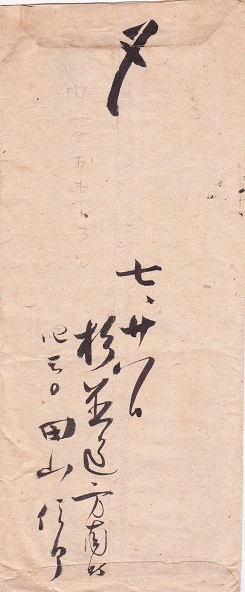 〆
七、廿八日
杉並区方南町
四三〇 田山信郎